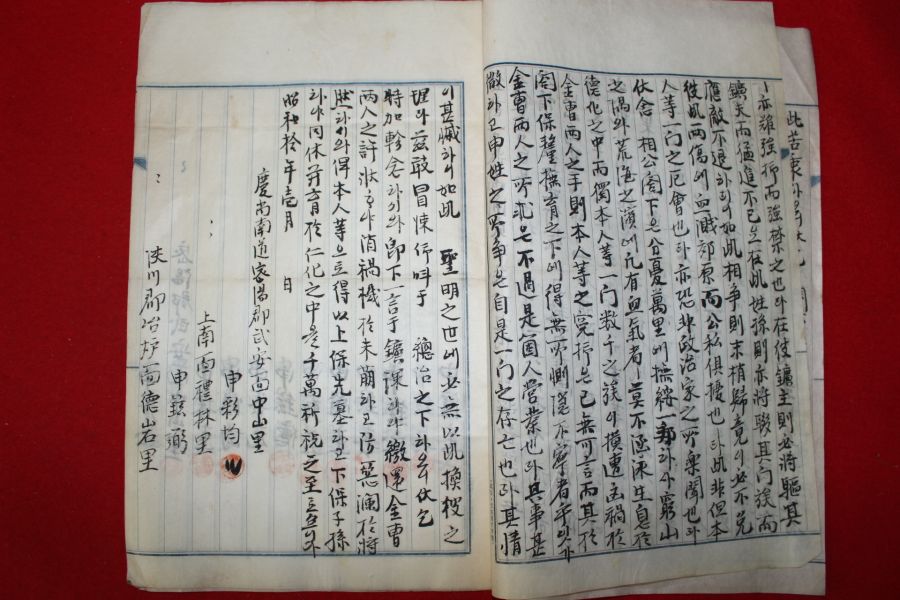 此苦衷
ㅣ亦難強抑而強禁之也라在彼鑛主則必將驅其
鑛夫而猛進不已으在此姓孫則亦將聚其門族而
應敵不退하리니如此相爭則末梢歸竟이必不免
彼此兩傷에血濺郊原而公私俱擾也라此非但本
人等一門之厄會也라亦恐非政治家之所樂聞也라
伏念 相公閣下은分憂萬里에撫綏一部하사窮山
之隅와荒海之濱에凡有血氣者ㅣ莫不涵泳生息於
德化之中而獨本人等一門數千之族이橫遭凶禍於
金曹兩人之手則本人等之寃抑은已無可言而其於
閣下保釐撫育之下에得無所惻隱不寧者乎잇가
金曹兩人之所求은不過是箇人營業也라其事甚
微하고申姓之所爭은自是一門之存亡也라其情
이甚慽하니如此 聖明之世에必無以此換彼之
理라玆敢冒悚仰呼于 總治之下하오니伏乞
特加軫念하시와卽下一言于鑛課하사繳還金曹
兩人之許狀하야消禍機於未萌하고防惡瀾於將
然하시와俾本人等으로得以上保先墓하고下保子孫
하야同休并育於仁化之中을千萬祈祝之至로소이다
昭和拾年壹月 日
慶尙南道密陽郡武安面中山里
申彩均
〃 上南面禮林里
申玆弼
〃 陜川郡冶炉面德岩里